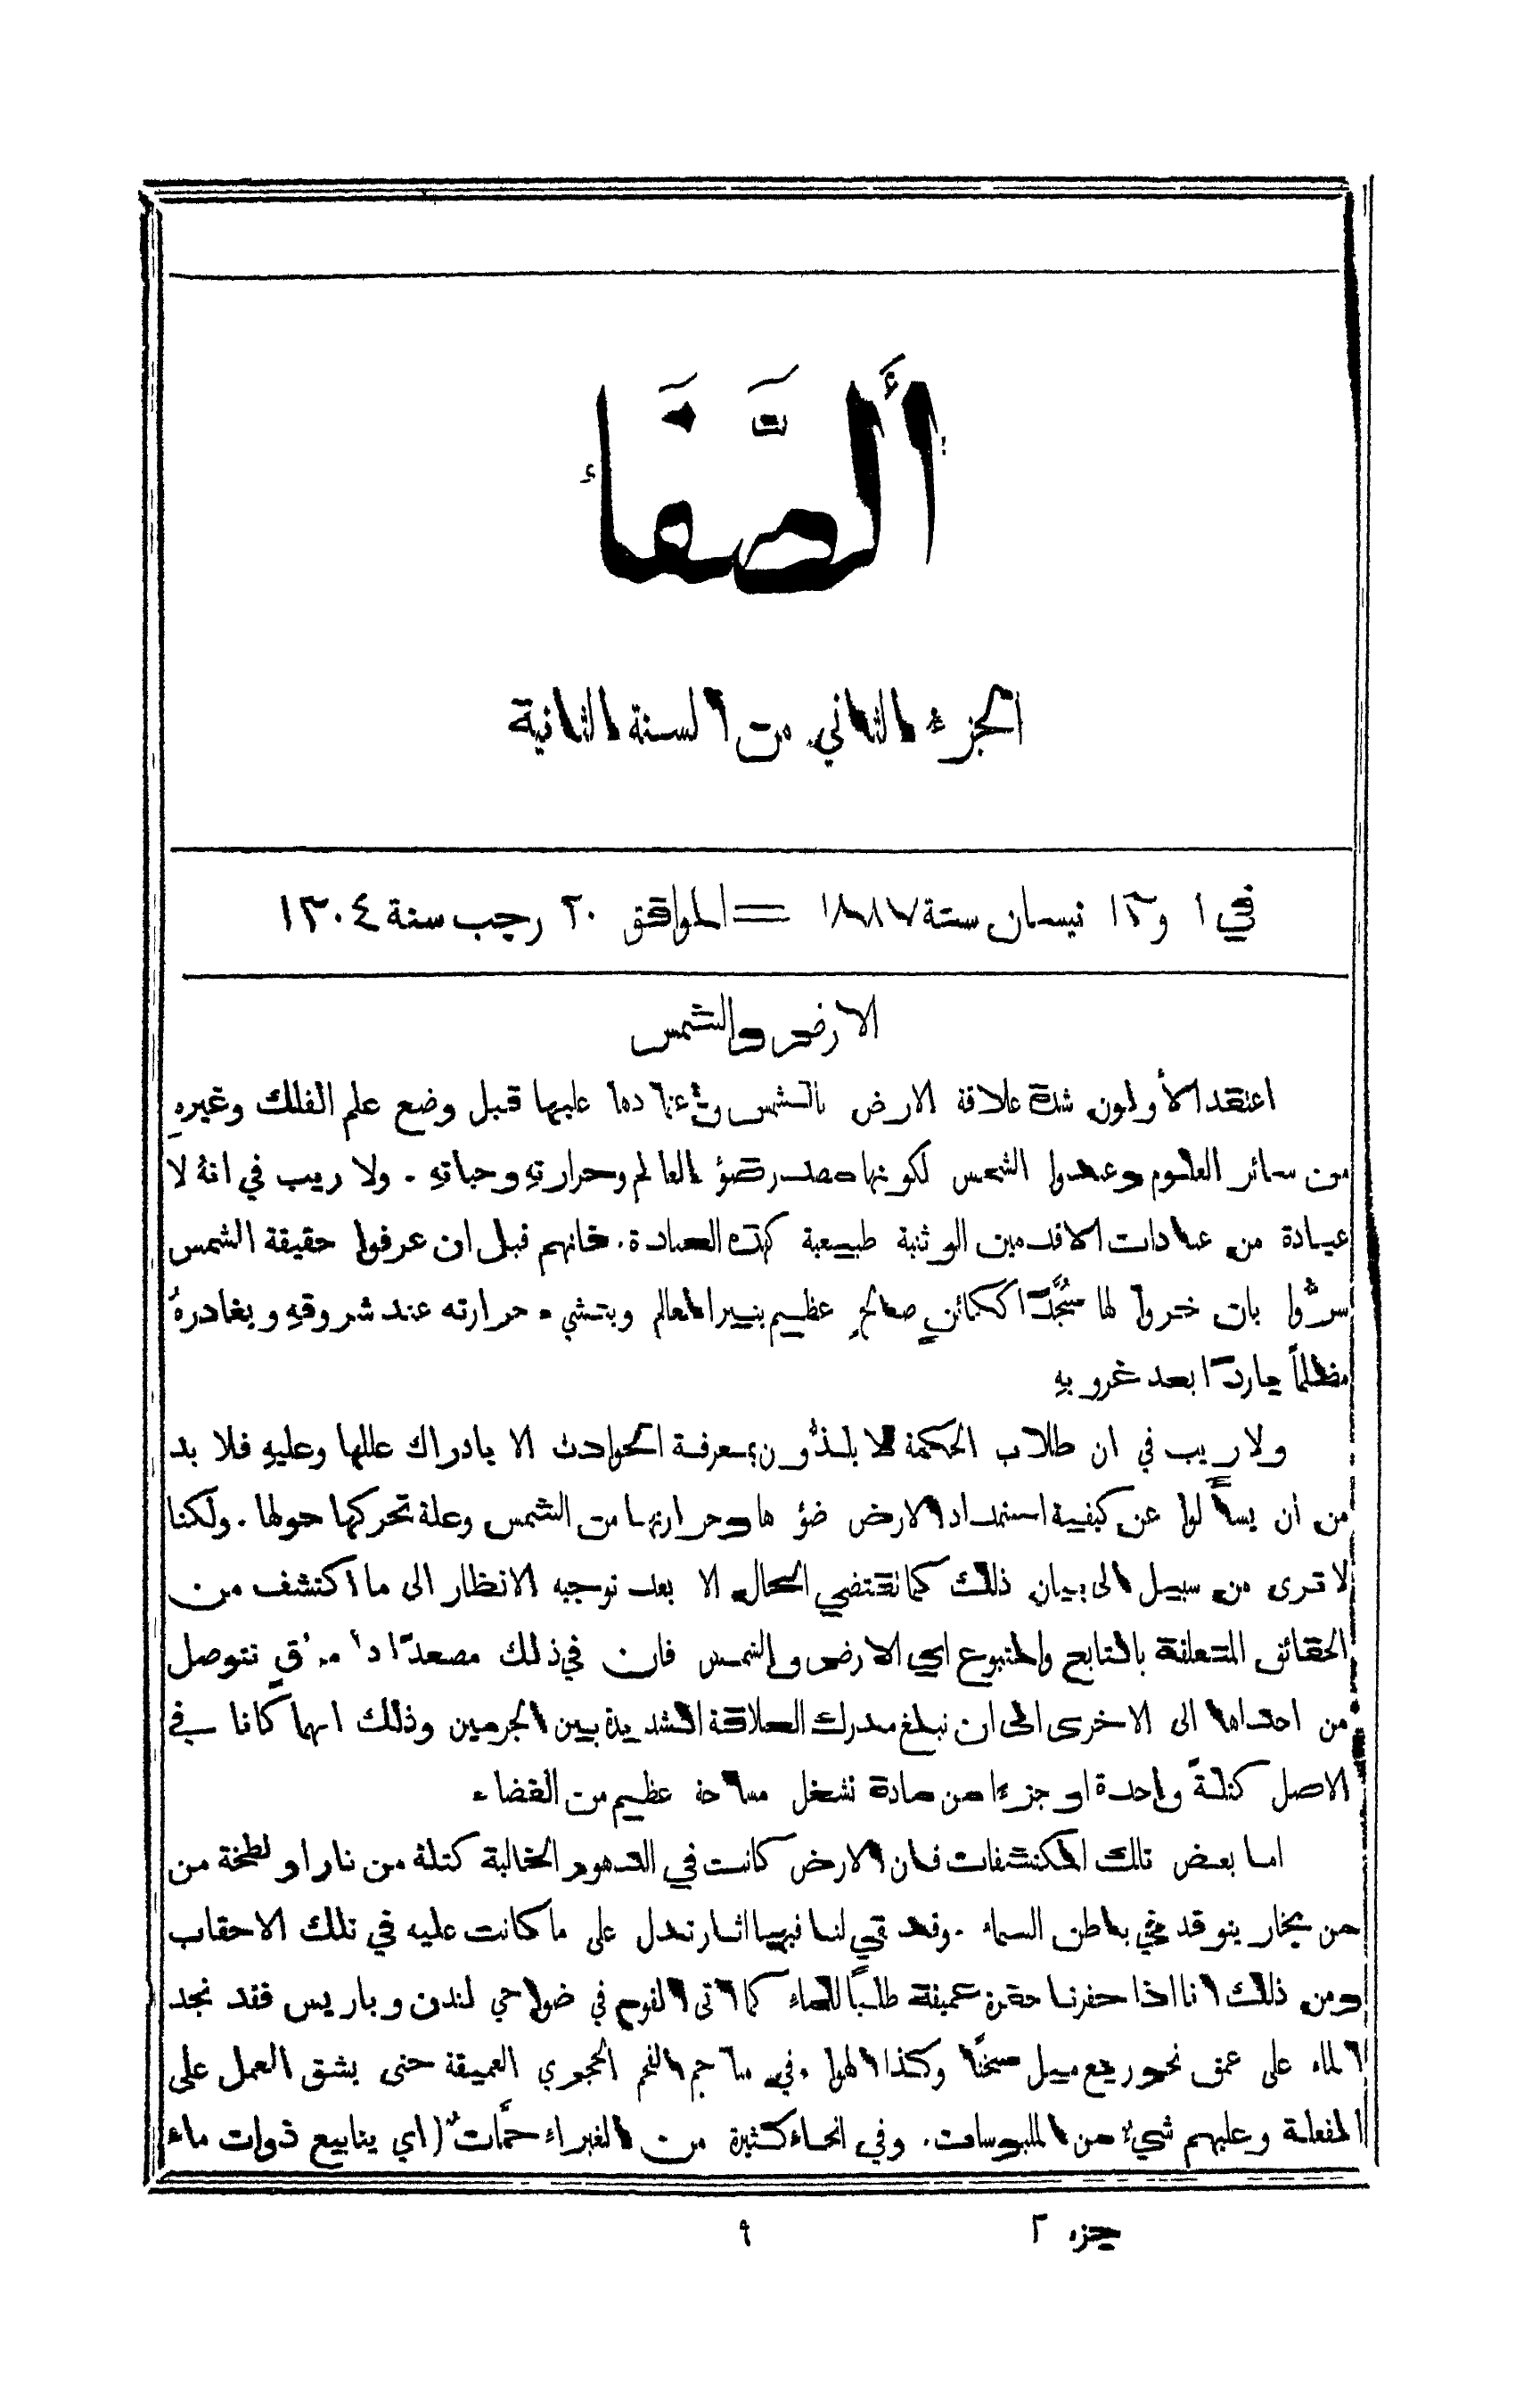 أَلصَّفَاء
الجزء الثاني من السنة الثانية
في ١ و١٣ نيسان سنة ١٨٨٧ = الموافق ٢٠ رجب سنة ١٣٠٤
الارض والشمس
اعتقد الأولون شدة علاقة الارض بالشمس واعتمادها عليها قبل وضع علم الفلك وغيرهِ
من سائر العلوم وعبدوا الشمس لكونها مصدر ضؤ العالم وحرارتهِ وحياتهِ . ولا ريب في انهُ لا
عبادة من عبادات الاقدمين الوثنية طبيعية كهذه العبادة . فانهم قبل ان عرفوا حقيقة الشمس
سرُّوا بان خروا لها سُجَّدًا ككائنٍ صالحٍ عظيم ينير العالم وتنشيء حرارته عند شروقهِ ويغادرهُ
مظلماً باردًا بعد غروبهِ
ولا ريب في ان طلاب الحكمة لا يلذُّون بمعرفة الحوادث الا بادراك عللها وعليهِ فلا بد
من ان يسأَلوا عن كيفية استمداد الارض ضؤها وحرارتها من الشمس وعلة تحركها حولها . ولكنا
لا نرى من سبيل الى بيان ذلك كما تقتضي الحال الا بعد توجيه الانظار الى ما اكتشف من
الحقائق المتعلقة بالتابع والمتبوع اي الارض والشمس فان في ذلك مصعدًا نتوصل
من احداها الى الاخرى الى ان نبلغ مدرك العلاقة الشديدة بين الجرمين وذلك انهما كانا في
الاصل كتلةً واحدة او جزءًا من مادة تشغل مساحة عظيم من الفضاء
اما بعض تلك المكتشفات فان الارض كانت في الدهور الخالية كتلة من نار او لطخة من
من بخار يتوقد في باطن السماء . وقد بقي لنا فيها اثار تدل على ما كانت عليه في تلك الاحقاب
ومن ذلك انا اذا حفرنا حفرة عميقة طلباً للماء كما اتى القوم في ضواحي لندن وباريس فقد نجد
الماء على عمق نحو ربع ميل سخنًا وكذا الهوا . في مناجم الفحم الحجري العميقة حتى يشق العمل على
الفعلة وعليهم شيءٌ من الملبوسات . وفي انحاء كثيرة من الغبراء حمَّات (اي ينابيع ذوات ماء
جزء ٢ ٩